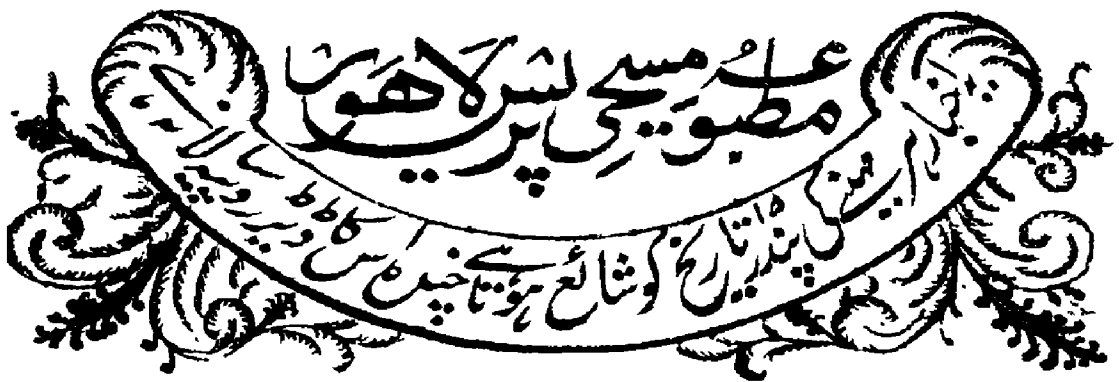 مطبوعہ مسیحی پریس لاہور
مہینے کی پندرہ تاریخ کو شائع ہوتا ہے چندہ اس کا روپیہ سالانہ